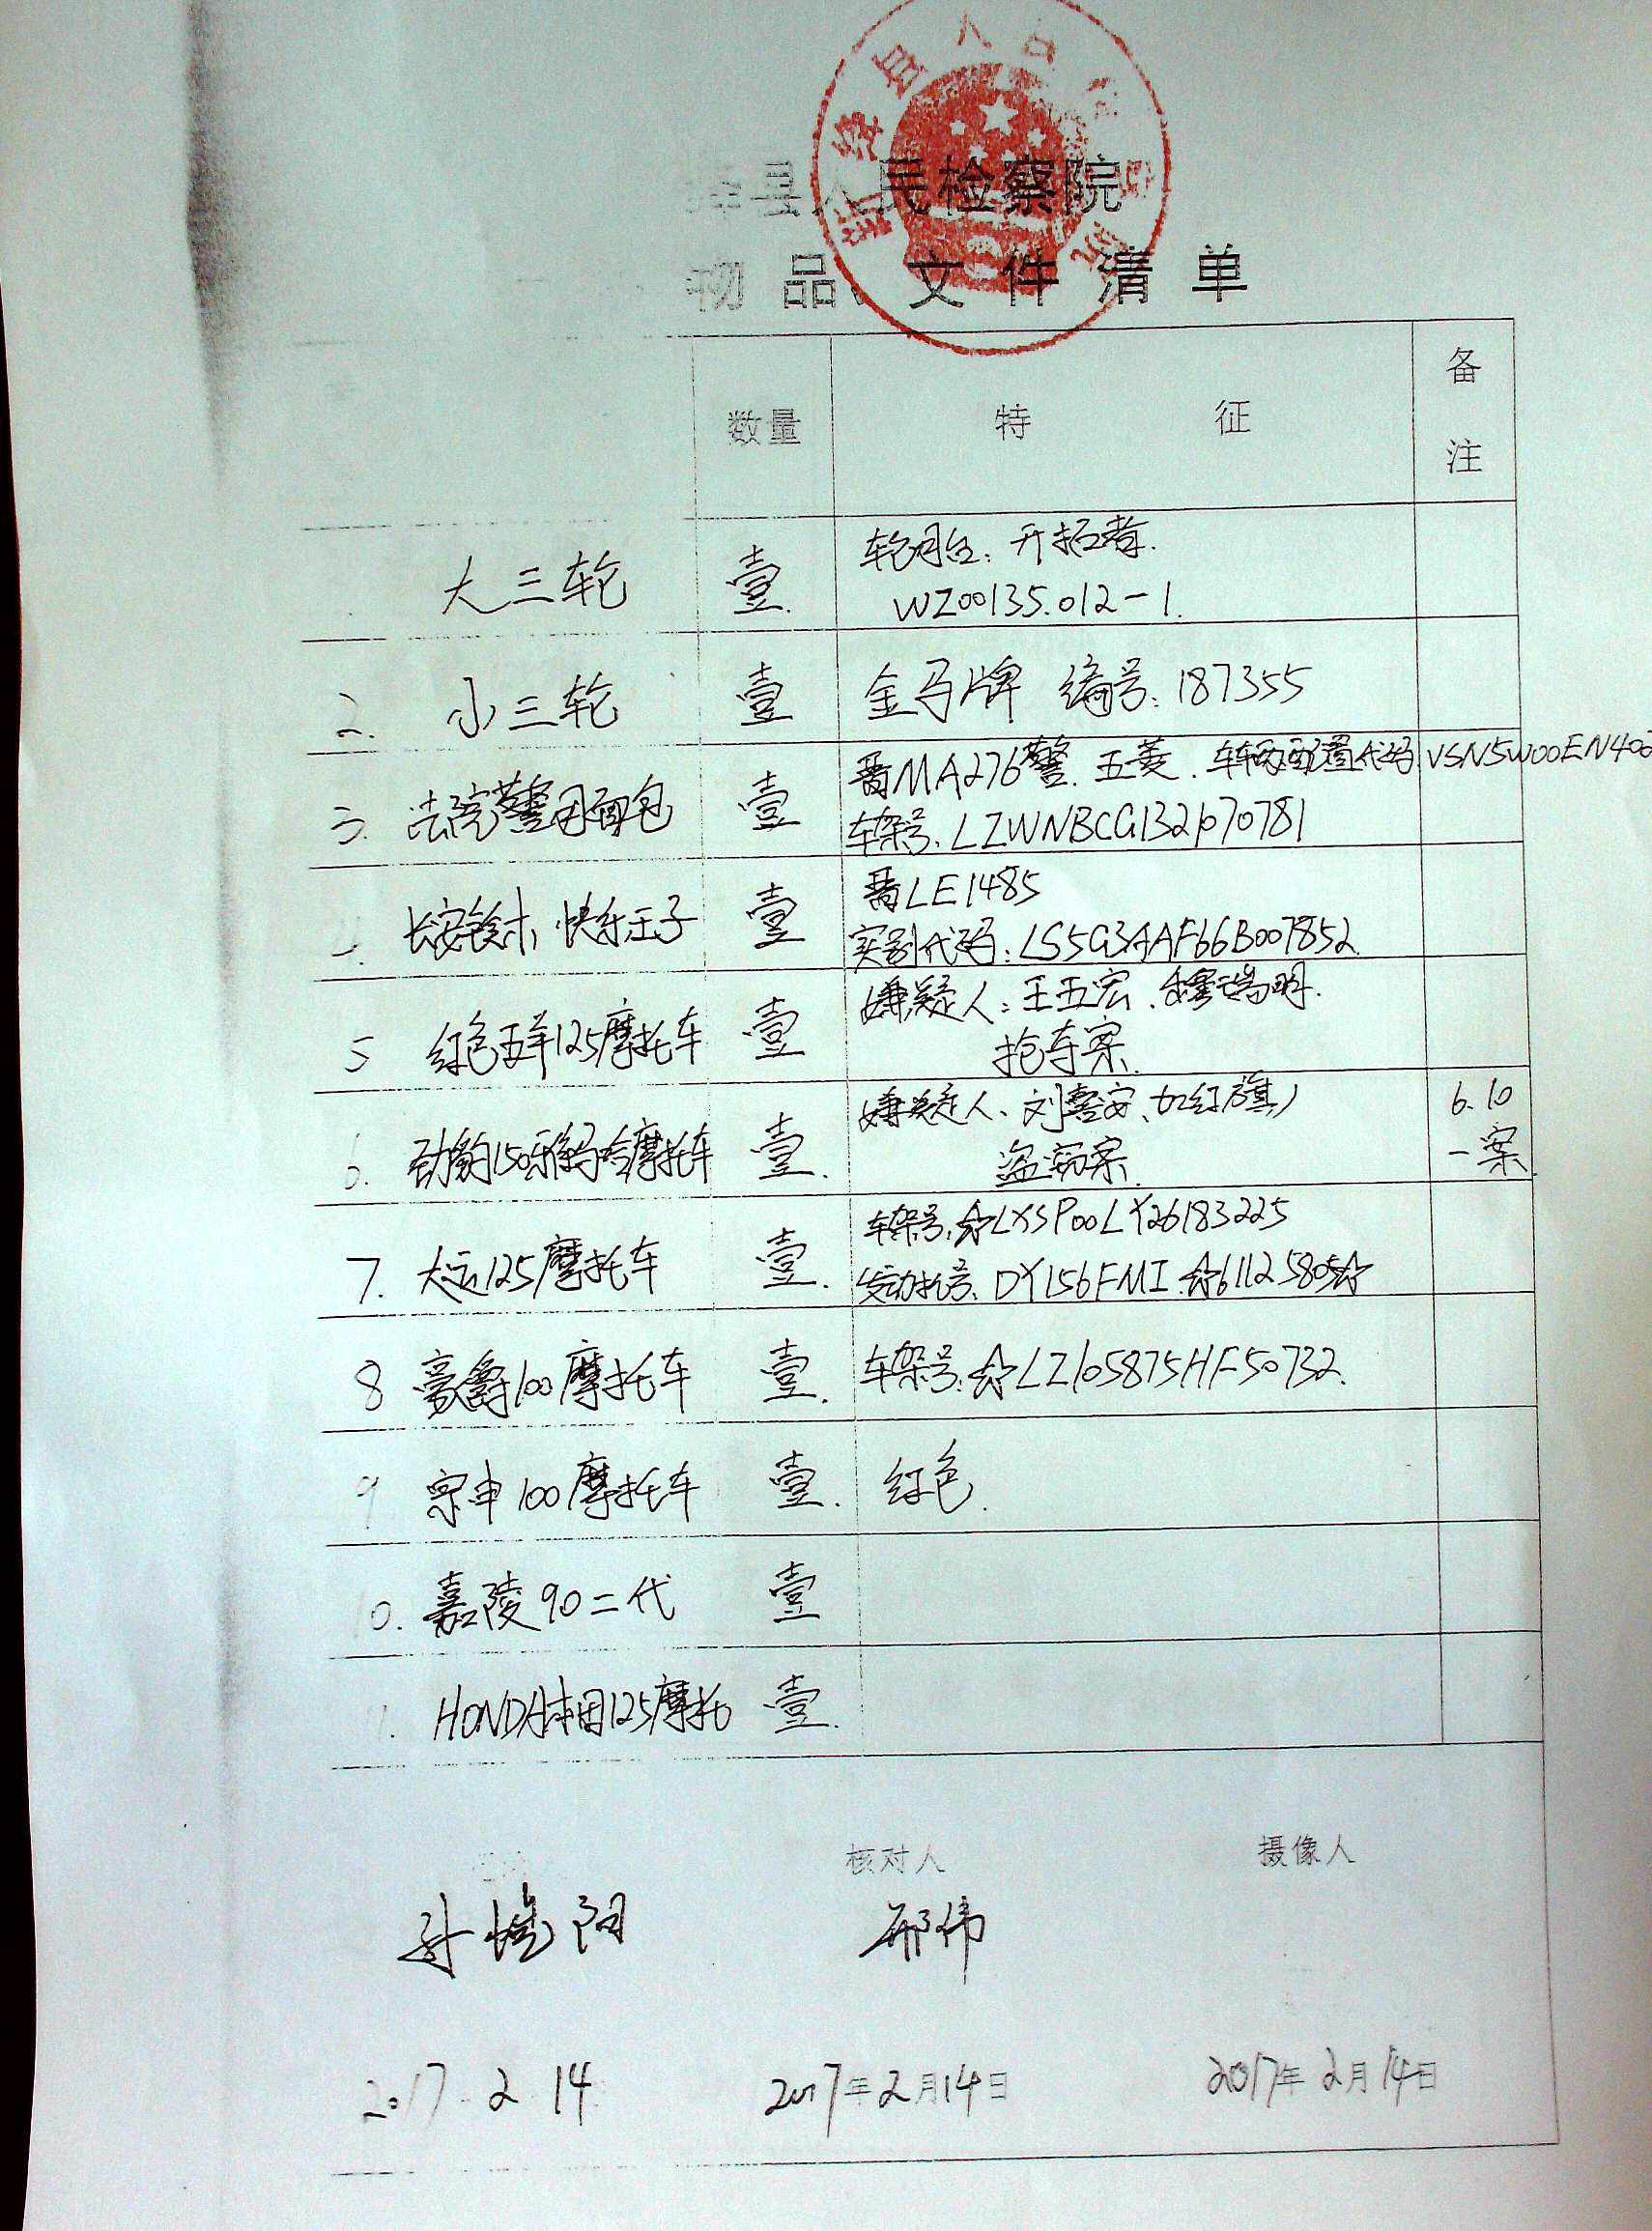 绛县人民检察院
物品、文件清单
数量 特征 备注
大三轮 壹. 轮胎: 开拓者.
WZ00135.012-1.
2. 小三轮 壹 金马牌 编号: 187355
3. 法院警用面包 壹 晋MA276警. 五菱. 车辆配置代码 VSN5W00EN40
车架号. LZWNBCG1321070781
长安铃木 快乐王子 壹 晋LE1485
实别代码: LS5G3AAF66B007852
5 红色五羊125摩托车 壹 嫌疑人: 王五宏.
抢夺案.
6. 劲豹150雅马哈摩托车 壹. 嫌疑人、刘喜安、加红旗) 6.10
盗窃案. 一案.
7. 大运125摩托车 壹. 车架号. ☆LXSP00LY26183225
发动机号、DY156FMI ☆61125805☆
8 豪爵100摩托车 壹. 车架号: ☆LZ105875HF50732.
9 宗申100摩托车 壹. 红色.
10. 嘉陵90二代 壹
1. HONDA本田125摩托 壹.
核对人 摄像人
邢伟
2017. 2 14 2017年2月14日 2017年2月14日